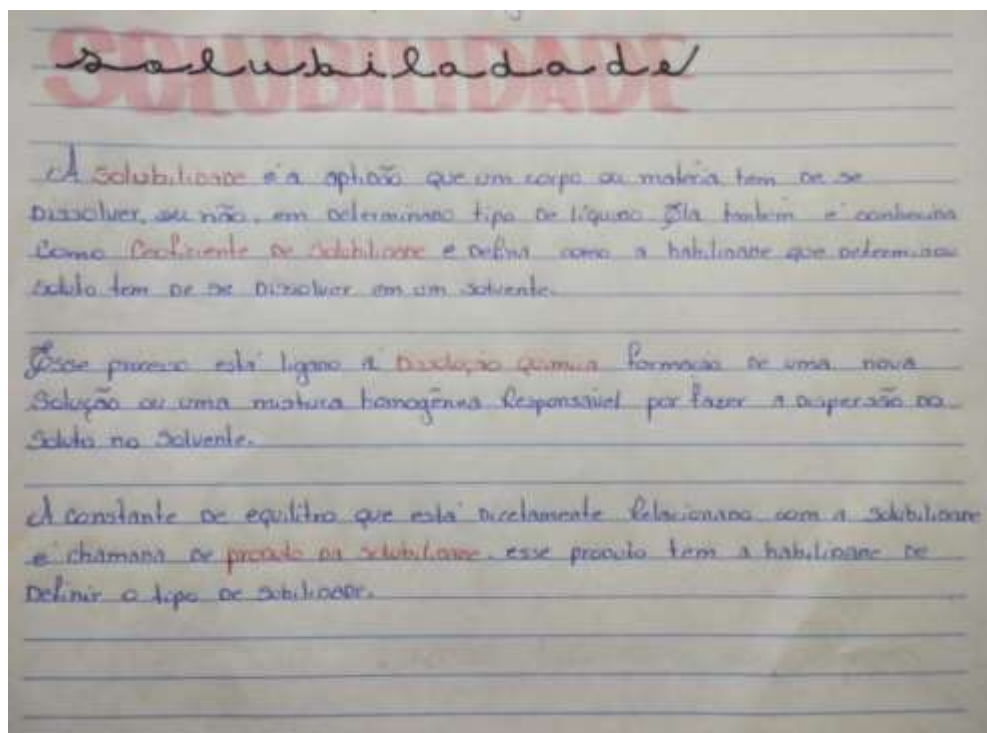 SOLUBILIDADE
solubiladade
A solubilidade é a aptidão que um corpo ou matéria tem de se
Dissolver, ou não, em determinado tipo de líquido Ela também é conhecida
Como Coeficiente de solubilidade e Defini como a habilidade que determinado
soluto tem de se Dissolver em um solvente.
Esse processo está ligado a Dissolução Química formação de uma nova
Solução ou uma mistura homogênea Responsável por fazer a dispersão do
Soluto no Solvente.
A constante de equilíbrio que está Diretamente Relacionado com a solubilidade
é chamada de produto da solubilidade. esse produto tem a habilidade de
Definir o tipo de